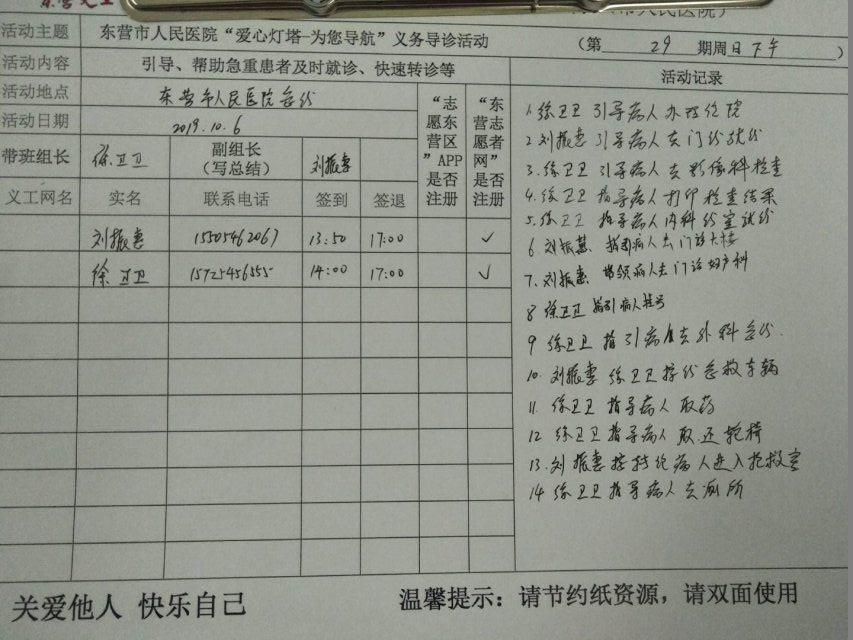 市人民医院）
活动主题 东营市人民医院“爱心灯塔—为您导航”义务导诊活动 （第 29 期周日下午 ）
活动内容 引导、帮助急重患者及时就诊、快速转诊等 活动记录
活动地点 东营市人民医院急诊
活动日期 2019.10.6
带班组长 徐卫卫 副组长（写总结） 刘振惠
“志愿东营区”APP是否注册
“东营志愿者网”是否注册
义工网名 实名 联系电话 签到 签退
刘振惠 15505462067 13:50 17:00 ✓
徐卫卫 15725456555 14:00 17:00 ✓
1. 徐卫卫 引导病人办理住院
2 刘振惠 引导病人去门诊就诊
3. 徐卫卫 引导病人去影像科检查
4. 徐卫卫 指导病人打印检查结果
5. 徐卫卫 指导病人内科诊室就诊
6. 刘振惠 指引病人去门诊大楼
7. 刘振惠 带领病人去门诊妇产科
8 徐卫卫 指引病人挂号
9 徐卫卫 指引病人去外科急诊.
10. 刘振惠 徐卫卫接诊急救车辆
11. 徐卫卫 指导病人取药
12 徐卫卫指导病人取.还轮椅
13. 刘振惠接转诊病人进入抢救室
14 徐卫卫指导病人去厕所
关爱他人 快乐自己 温馨提示：请节约纸资源，请双面使用